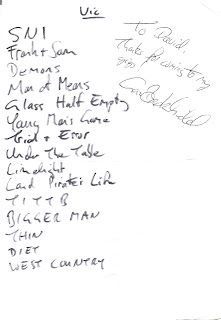 Vic
SNI
Frank + Sam
Demons
Man of Means
Glass Half Empty
Young Man's Game
Trial + Error
Under The Table
Limelight
Land Pirate's Life
T I T T B
BIGGER MAN
THIN
DIET
WEST COUNTRY
To David,
Thanks for coming to my
gig!